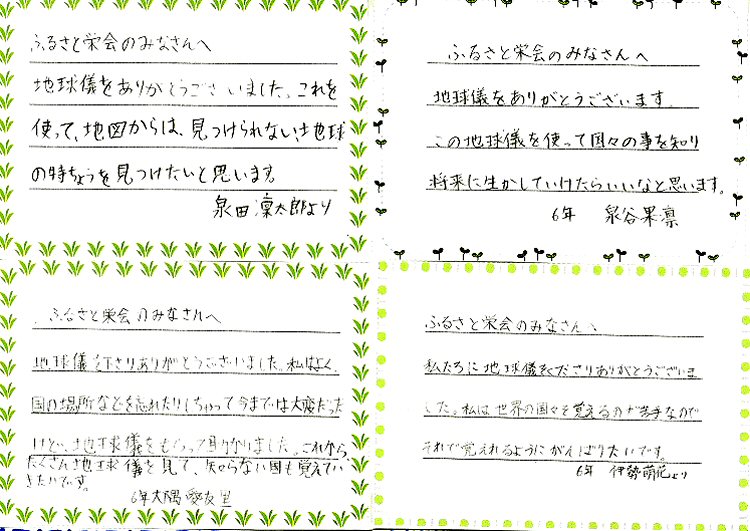 ふるさと栄会のみなさんへ
地球儀をありがとうございました。これを
使って、地図からは、見つけられない、地球
の特ちょうを見つけたいと思います。
泉田 凜太郎より
ふるさと栄会のみなさんへ
地球儀をありがとうございます。
この地球儀を使って国々の事を知り
将来に生かしていけたらいいなと思います。
6年 泉谷果凛
ふるさと栄会のみなさんへ
地球儀を下さりありがとうございました。私はよく、
国の場所などを忘れたりしちゃって今までは大変だった
けど、地球儀をもらって助かりました。これから
たくさん地球儀を見て、知らない国も覚えてい
きたいです。
6年大隅 愛友里
ふるさと栄会のみなさんへ
私たちに地球儀をくださりありがとうございま
した。私は世界の国々を覚えるのが苦手なので
それで覚えれるようにがんばりたいです。
6年 伊勢萌花より